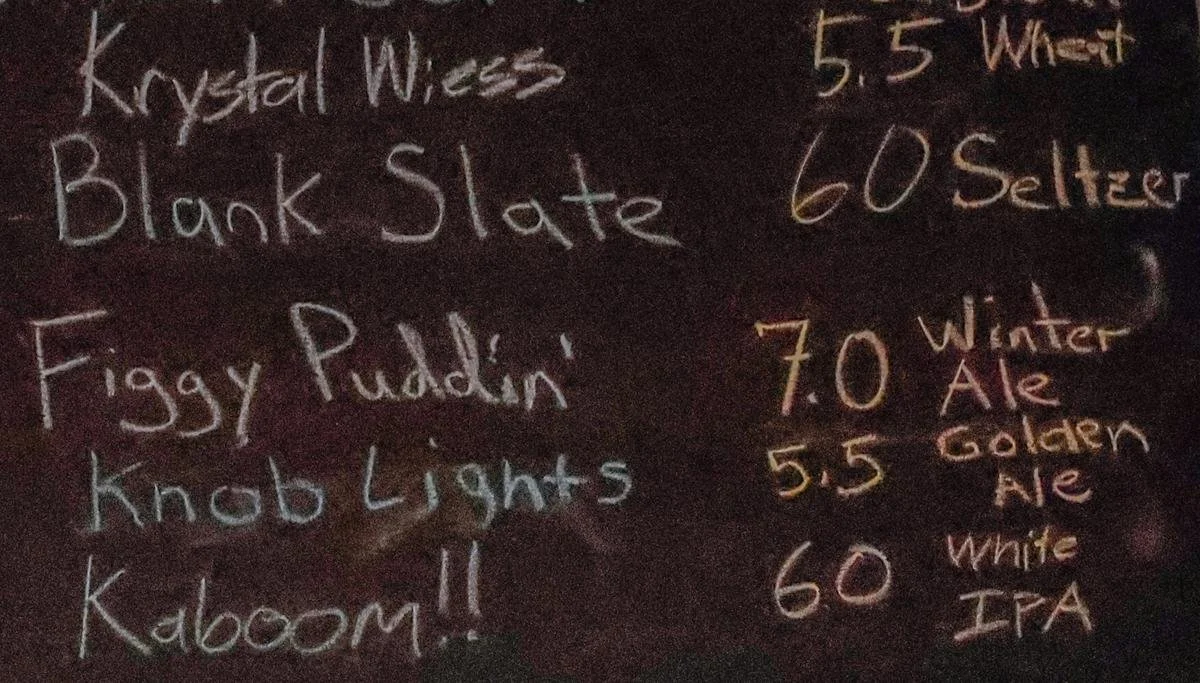 Krystal Wiess 5.5 Wheat
Blank Slate 60 Seltzer
Figgy Puddin' 7.0 Winter Ale
Knob Lights 5.5 Golden Ale
Kaboom!! 60 White IPA